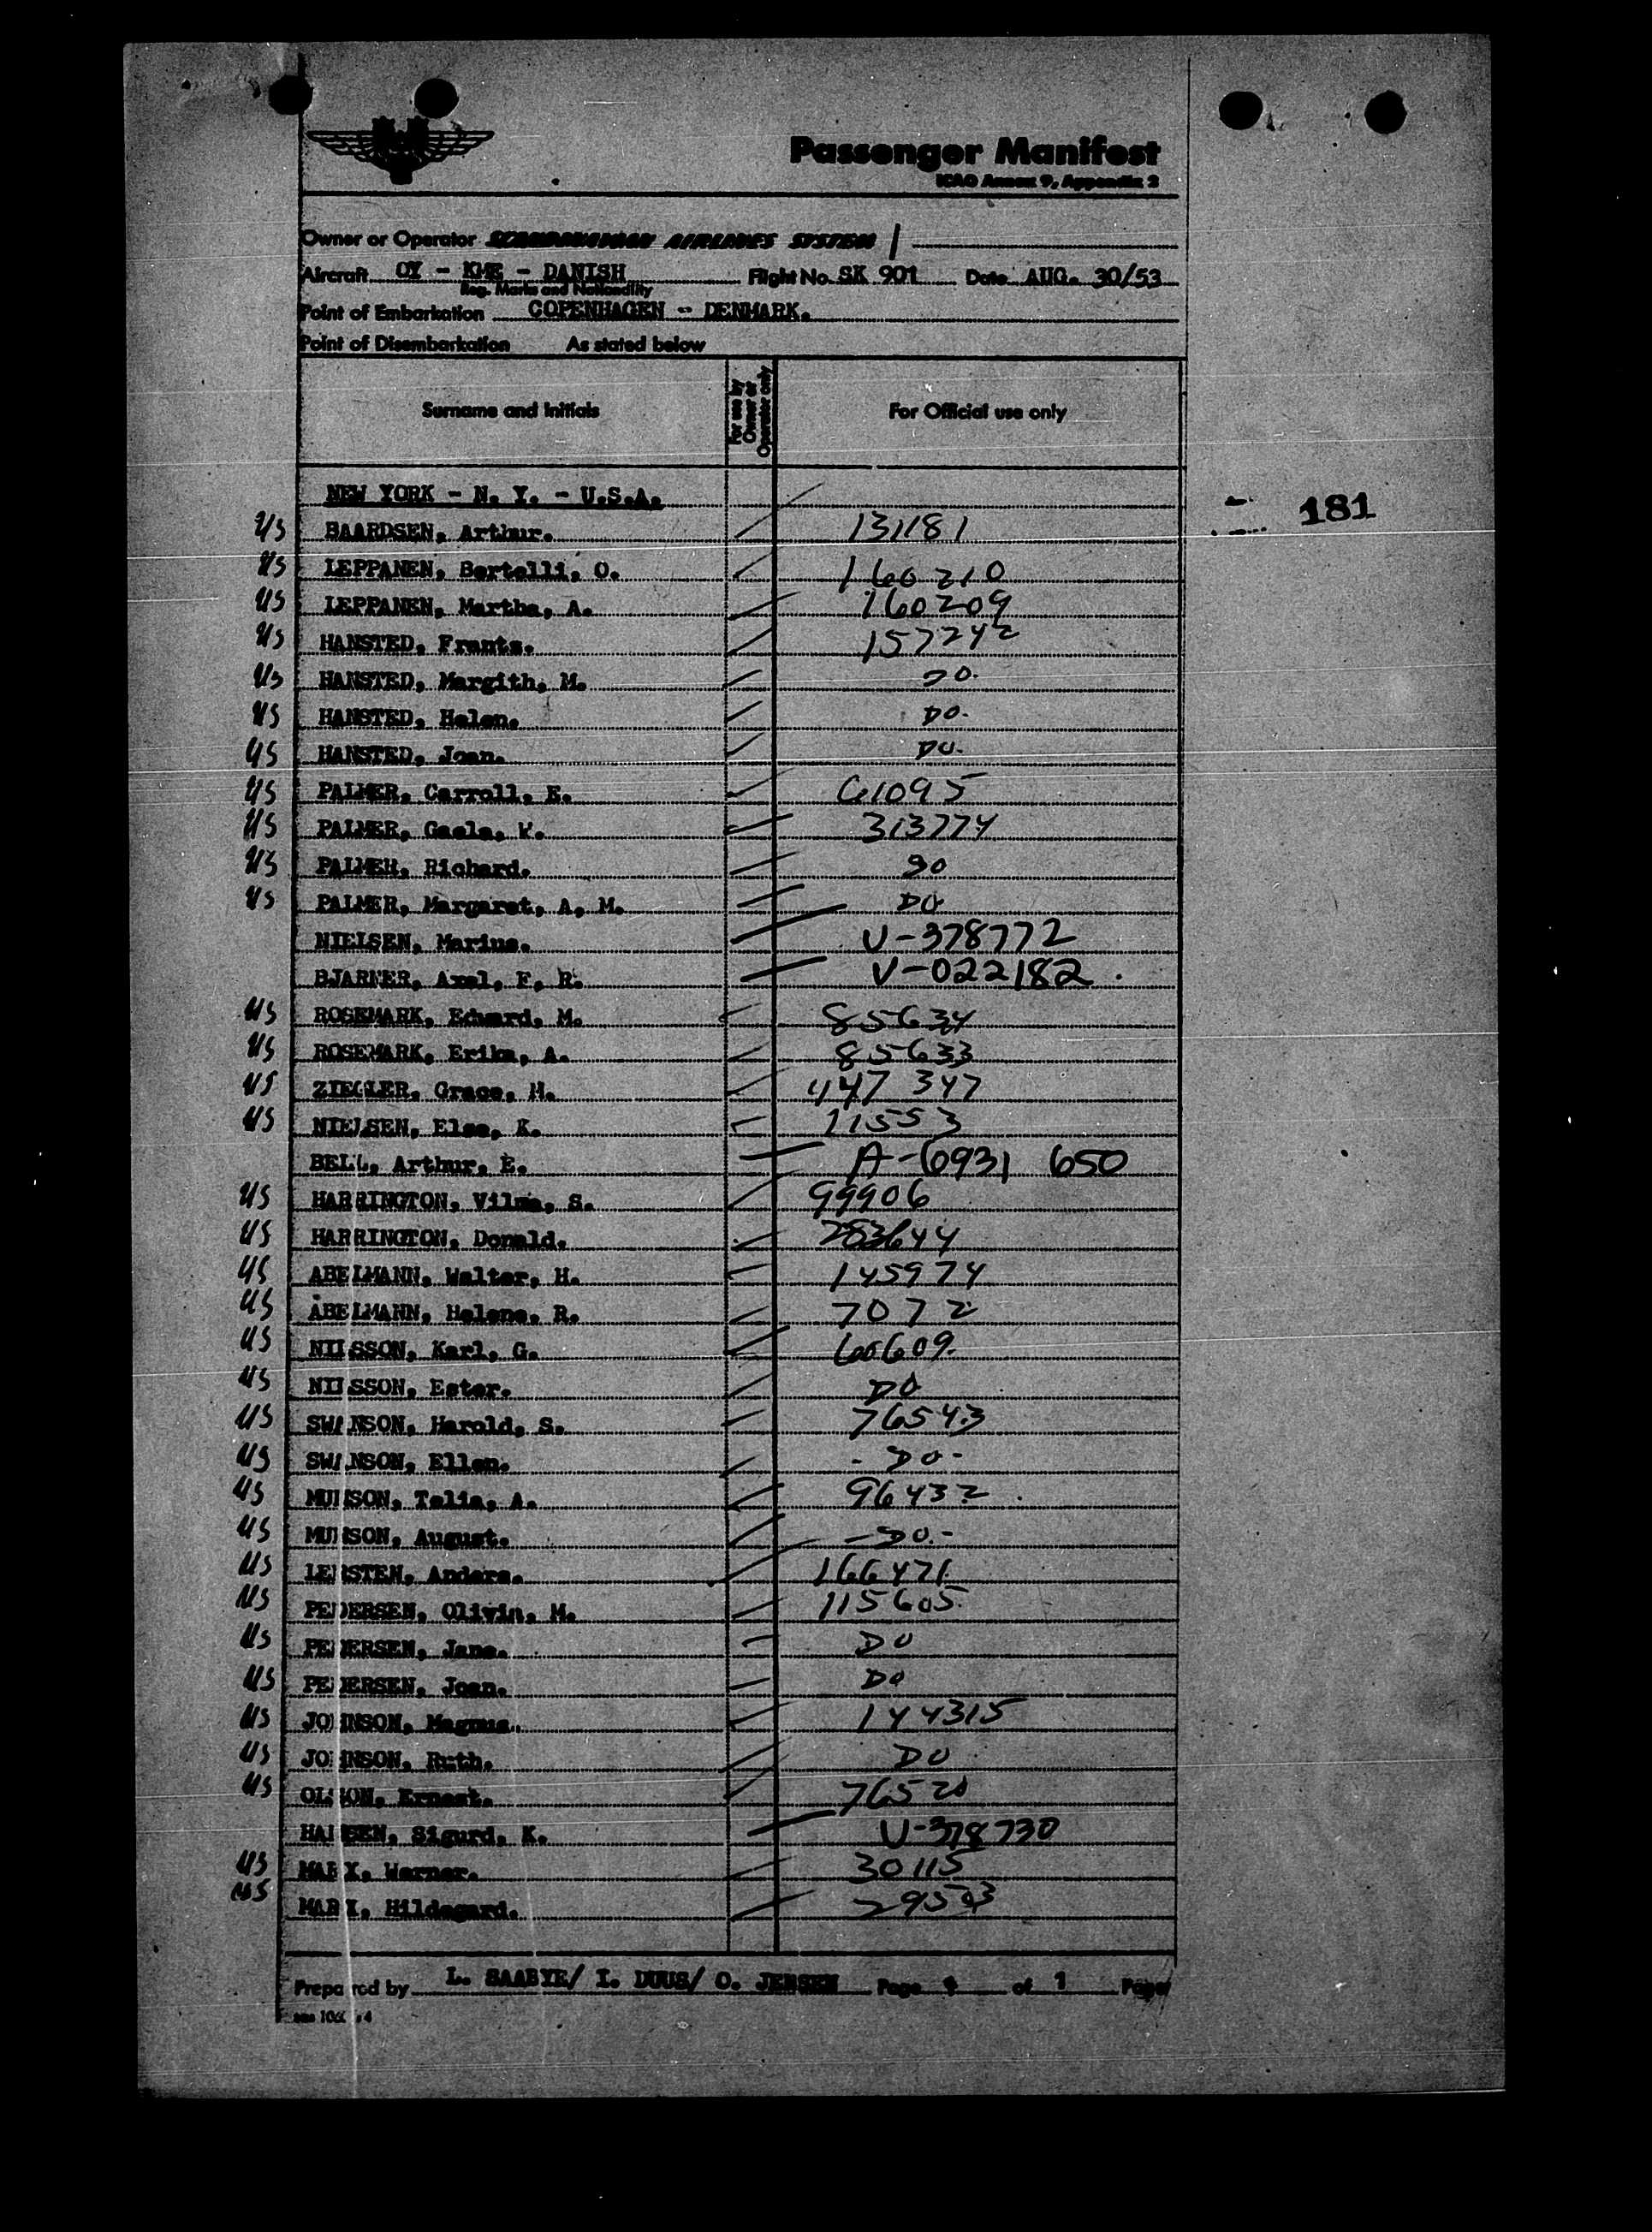 Passenger Manifest
ICAO Annex 9, Appendix 2
Owner or Operator SCANDINAVIAN AIRLINES SYSTEM
Aircraft OY - KME - DANISH Flight No. SK 901 Date AUG. 30/53
Reg. Marks and Nationality
Point of Embarkation COPENHAGEN - DENMARK.
Point of Disembarkation As stated below
Surname and Initials For use by Owner or Operator only For Official use only
NEW YORK - N. Y. - U.S.A.
181
US BAARDSEN, Arthur. 131181
US LEPPANEN, Bertelli, O. 160210
US LEPPANEN, Martha, A. 160209
US HANSTED, Frants. 157242
US HANSTED, Margith, M. DO.
US HANSTED, Helen. DO.
US HANSTED, Joan. DO.
US PALMER, Carroll, E. 61095
US PALMER, Gaela, W. 313774
US PALMER, Richard. DO
US PALMER, Margaret, A, M. DO
NIELSEN, Marius. V-378772
BJARNER, Axel, F, R. V-022182.
US ROSEMARK, Edward, M. 85634
US ROSEMARK, Erika, A. 85633
US ZIEGLER, Grace, H. 447347
US NIELSEN, Else, K. 11553
BELL, Arthur, E. A-6931 650
US HARRINGTON, Vilma, S. 99906
US HARRINGTON, Donald. 283644
US ABELMANN, Walter, H. 145974
US ABELMANN, Helene, R. 7072
US NILSSON, Karl, G. 60609.
US NILSSON, Ester. DO
US SWANSON, Harold, S. 76543
US SWANSON, Ellen. - DO -
US MUNSON, Talia, A. 96432
US MUNSON, August. - DO. -
US LERSTEN, Anders. 166471
US PEDERSEN, Olivia, M. 115605
US PEDERSEN, Jane. DO
US PEDERSEN, Joan. DO
US JOHNSON, Magnus. 144315
US JOHNSON, Ruth. DO
US OLSSON, Ernest. 76520
HANSEN, Sigurd, K. V-378730
US MARX, Werner. 30115
US MARX, Hildegard. 29503
Prepared by L. SAABYE/ I. DUUS/ O. JENSEN Page of 1 Pages